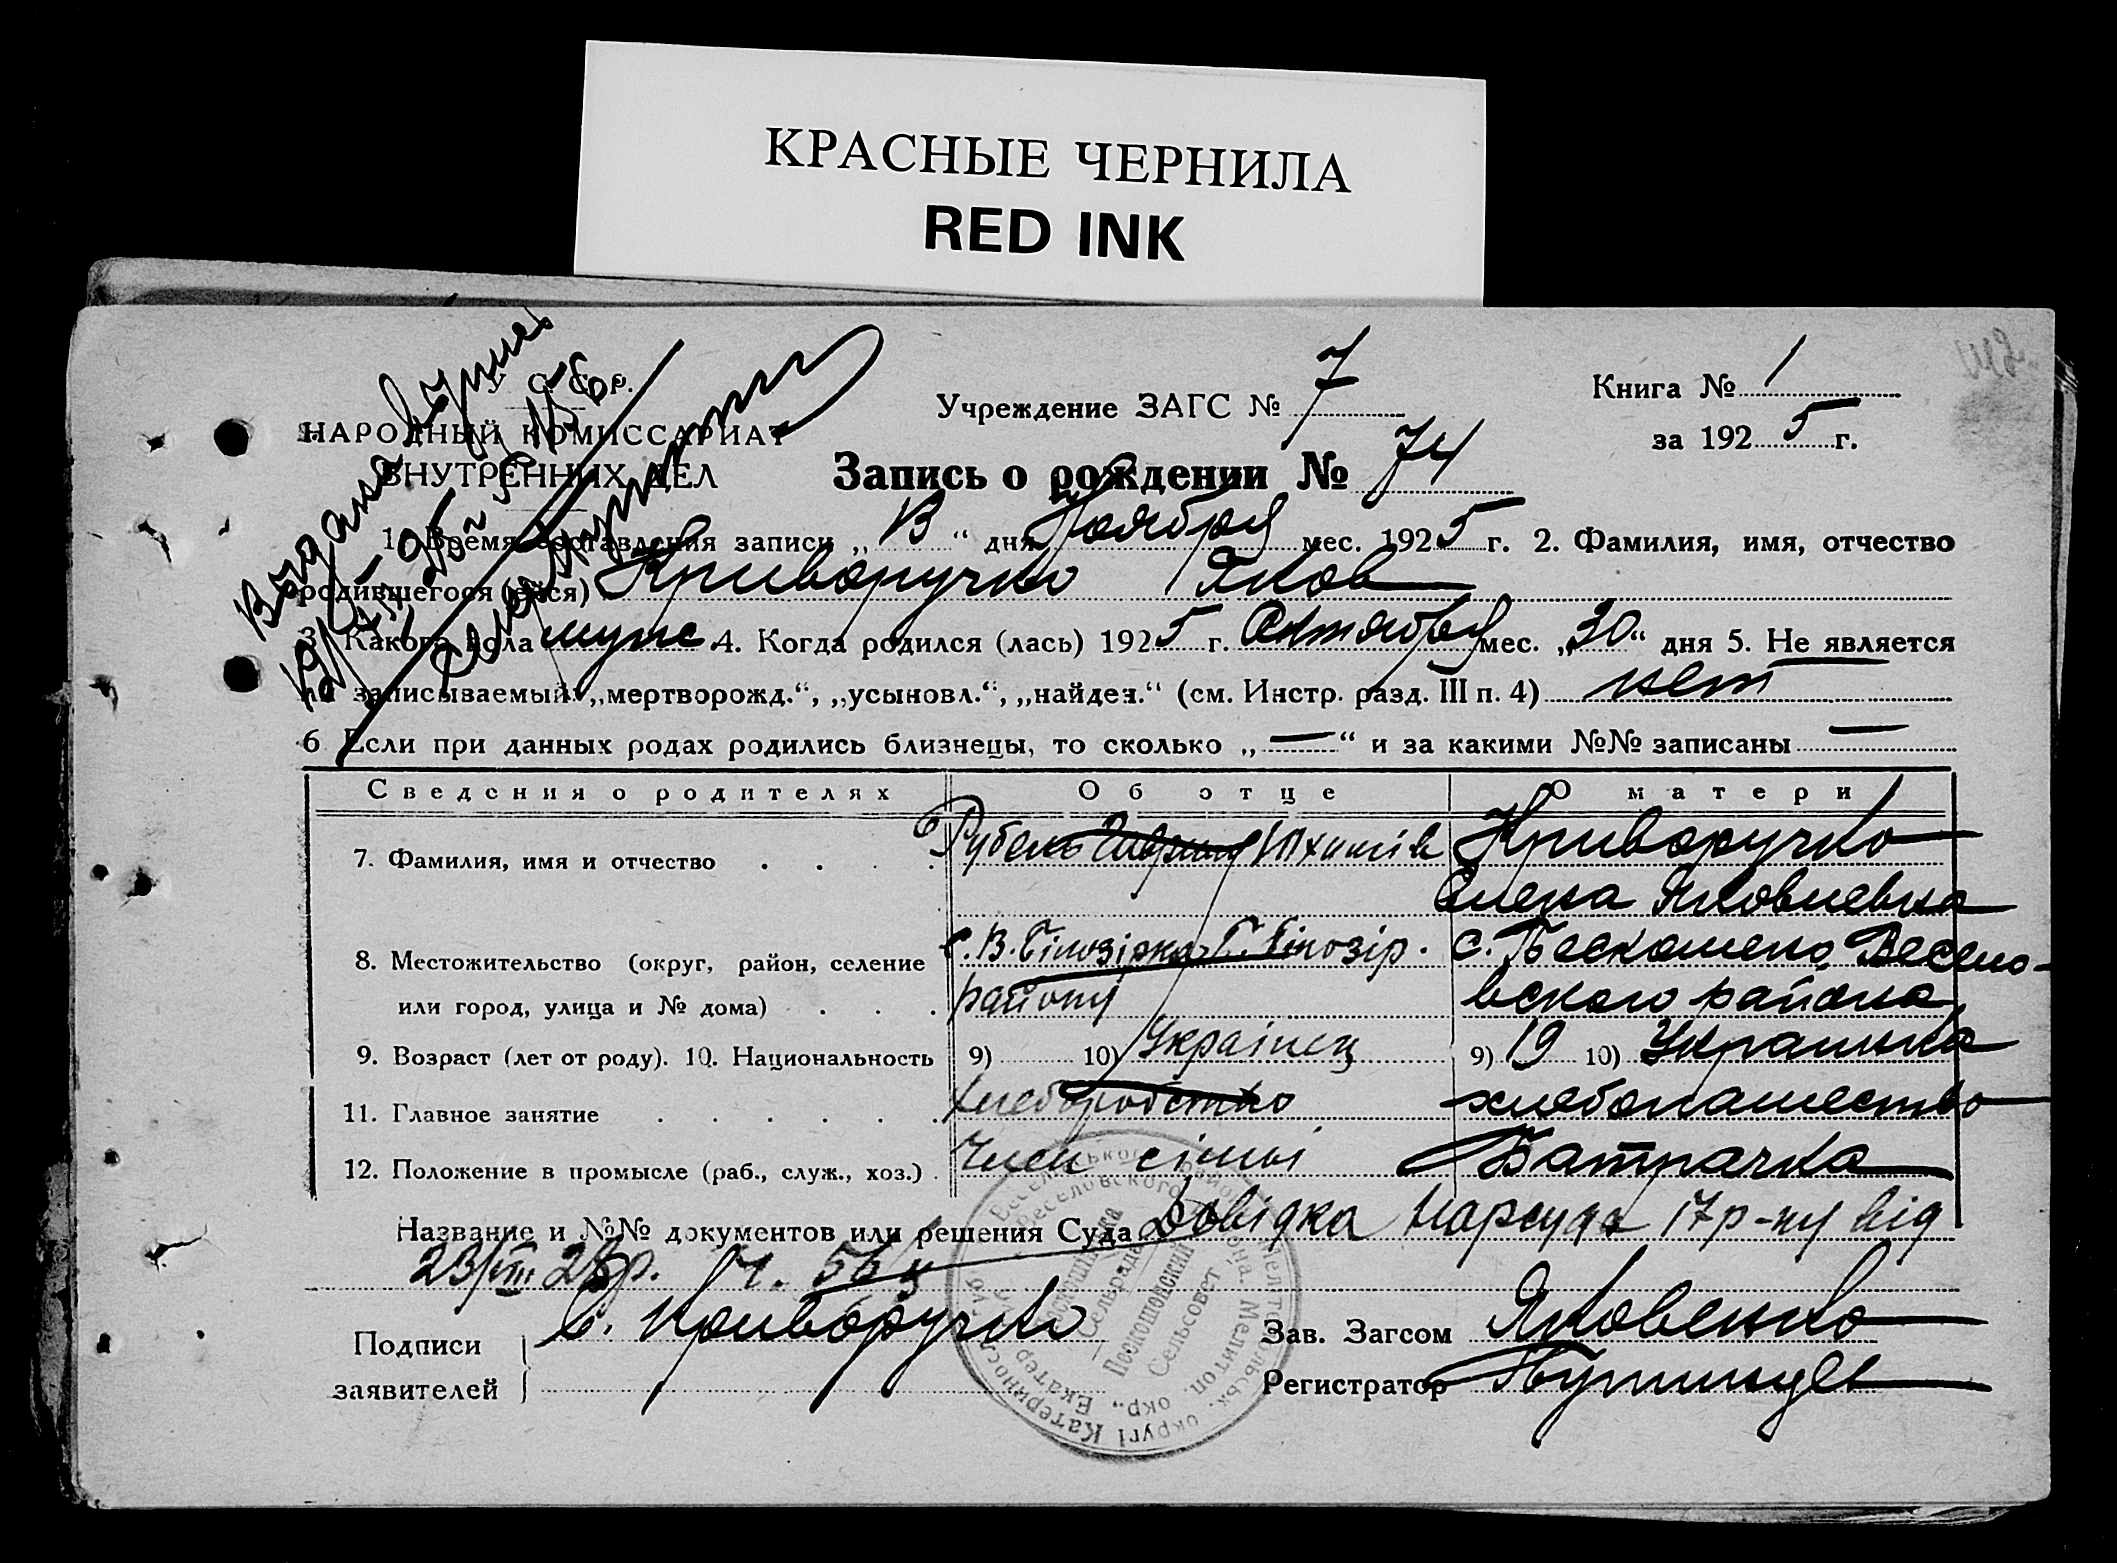 КРАСНЫЕ ЧЕРНИЛА
RED INK
У С С Р.
НАРОДНЫЙ КОМИССАРИАТ
ВНУТРЕННИХ ДЕЛ
Учреждение ЗАГС № 7
Книга № 1
за 1925 г.
Запись о рождении № 74
1. Время составления записи „ “ дня Ноября мес. 1925 г. 2. Фамилия, имя, отчество
родившегося (ейся) Криворучко Яков
3. Какого пола муж. 4. Когда родился (лась) 1925 г. Октября мес. „30“ дня 5. Не является
ли записываемый: „мертворожд.“, „усыновл.“, „найден.“ (см. Инстр. разд. III п. 4) нет
6 Если при данных родах родились близнецы, то сколько „—“ и за какими №№ записаны —
Сведения о родителях Об отце О матери
7. Фамилия, имя и отчество Криворучко
Елена Яковлевна
8. Местожительство (округ, район, селение с. В. Білозірка В. Білозір. с. Весело-
или город, улица и № дома) району вского района
9. Возраст (лет от роду). 10. Национальность 9) 10) Українец 9) 19 10) Украинка
11. Главное занятие хлеборобство хлебопашество
12. Положение в промысле (раб., служ., хоз.) Член сімьі Батрачка
Название и №№ документов или решения Суда Довідка Нарсуда 17 р-ну від
23/III 28 р.
Подписи
заявителей
Е. Криворучко
Зав. Загсом Яковенко
Регистратор